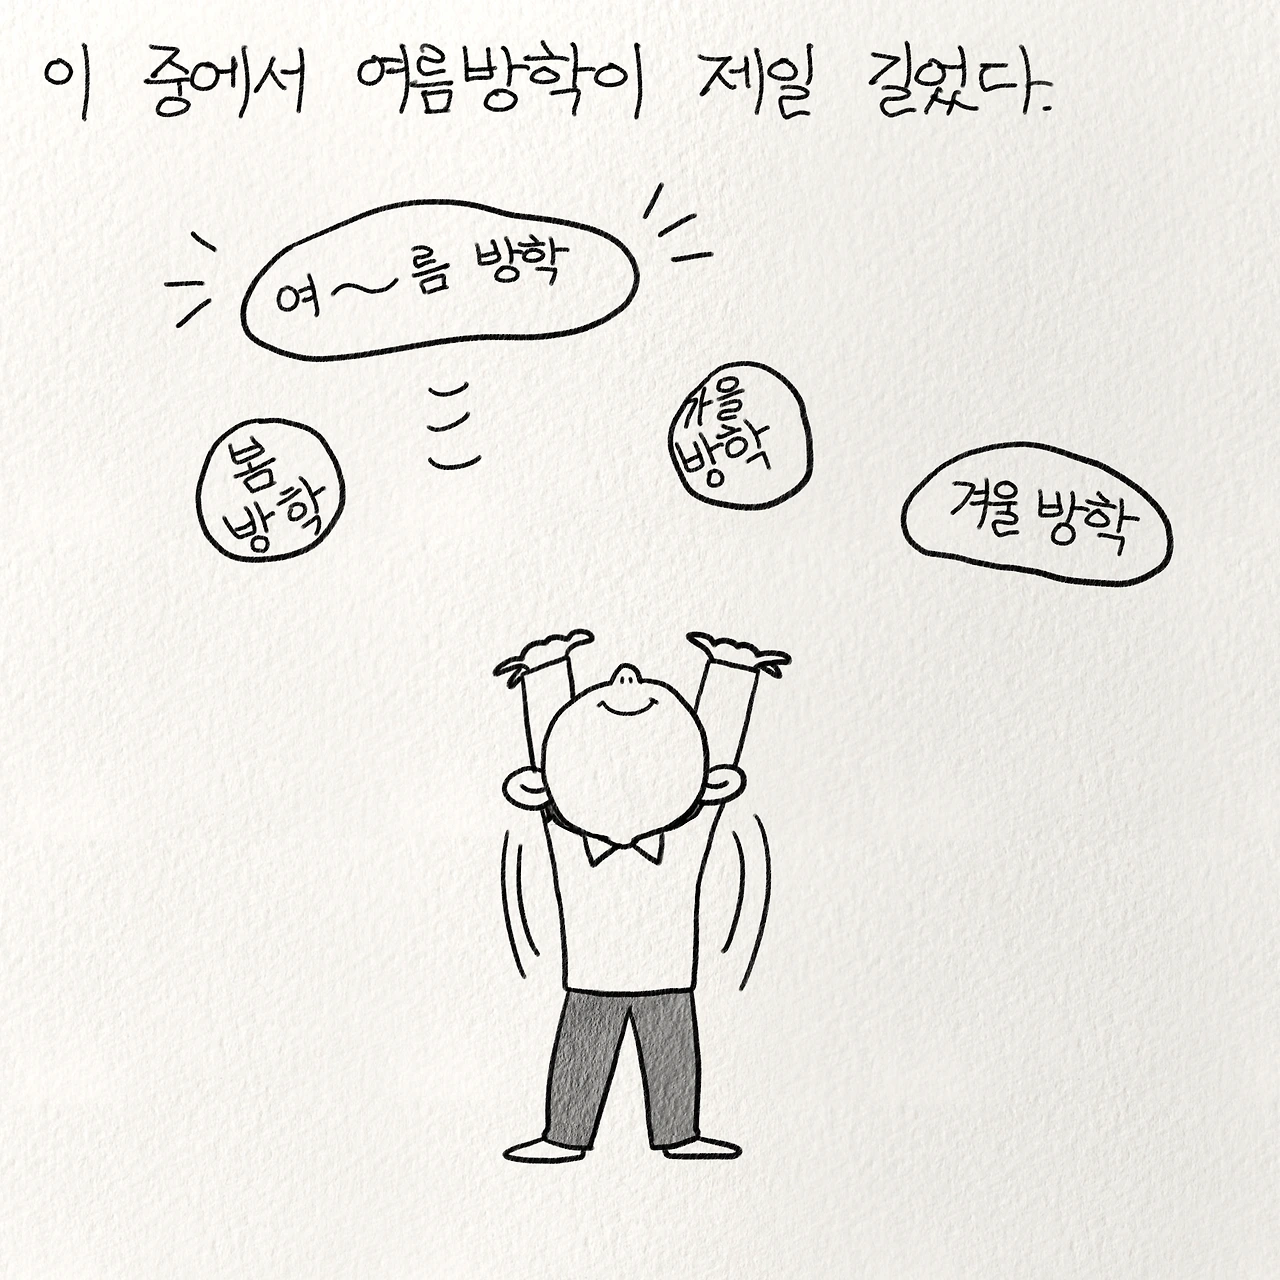 이 중에서 여름방학이 제일 길었다.
여~름 방학
봄
방학
가을
방학
겨울 방학